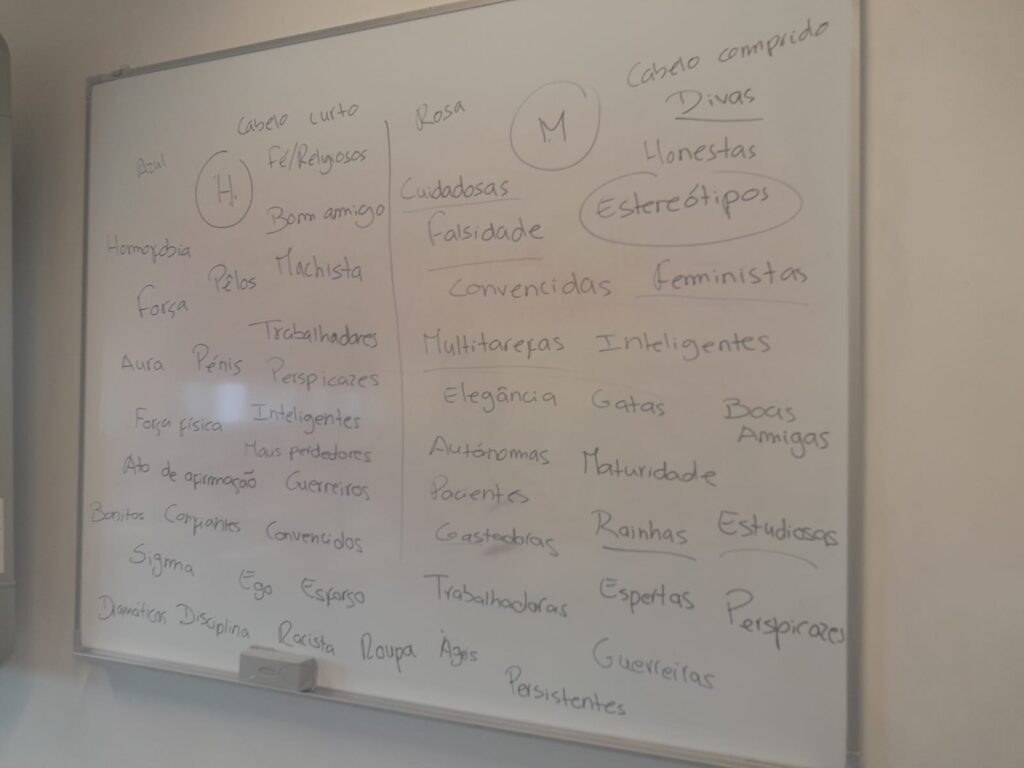 Cabelo curto
Azul
H.
Fé/Religiosos
Bom amigo
Homofobia
Pêlos
Machista
Força
Trabalhadores
Aura
Pénis
Perspicazes
Força física
Inteligentes
Maus perdedores
Ato de afirmação
Guerreiros
Bonitos
Confiantes
Convencidos
Sigma
Ego
Esforço
Dramáticos
Disciplina
Racista
Roupa
Rosa
M
Cabelo comprido
Divas
Honestas
Cuidadosas
Estereótipos
Falsidade
Convencidas
Feministas
Multitarefas
Inteligentes
Elegância
Gatas
Boas
Amigas
Autónomas
Maturidade
Pacientes
Gastadoras
Rainhas
Estudiosas
Trabalhadoras
Espertas
Perspicazes
Ágeis
Guerreiras
Persistentes